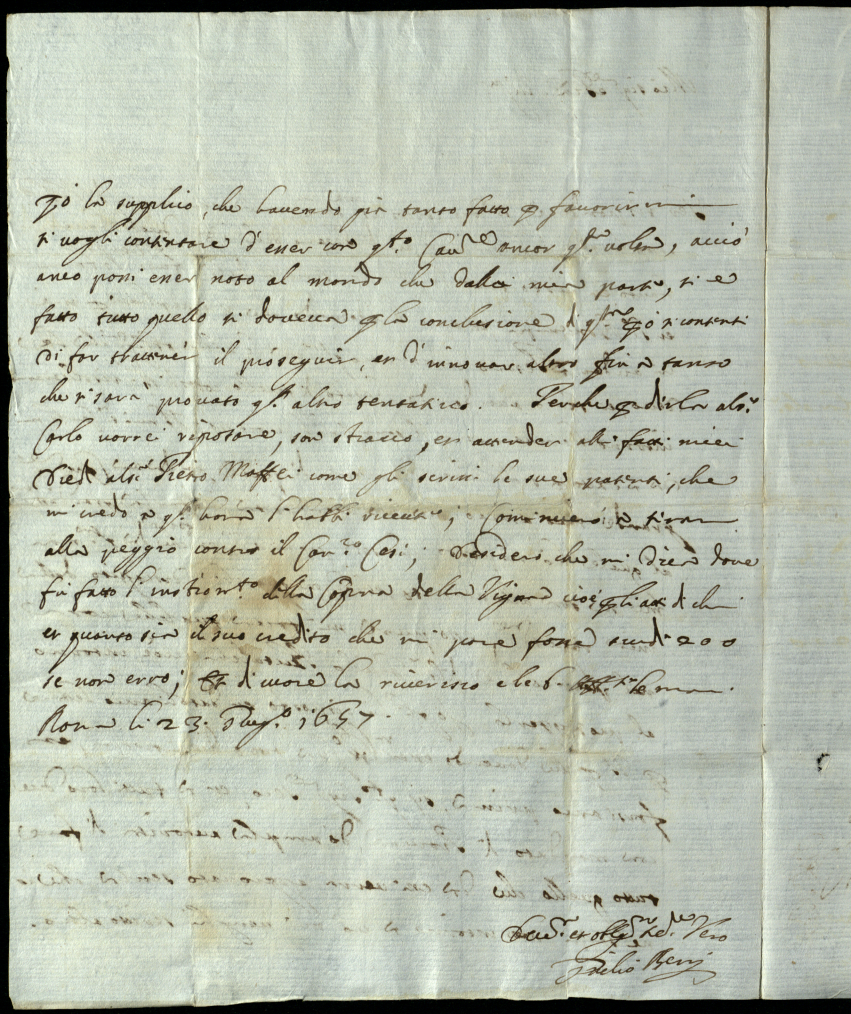 la supplico, che havendo già tanto fatto p favorirmi
si vogli contentare d'esser con q.to Cav.re ancor q.ta volta, acciò
anco possi esser noto al mondo che dalla mia parte, si è
fatto tutto quello si doveva p la conclusione di si contenti
di far trattener il proseguir, et d'innovar altro fin a tanto
che si sarà provato q.to altro tentativo. Perche p dirla al s.r
Carlo vorrei riposare, son stracco, et attender alli fatti miei
Diedi al s.r Pietro Maffei come gli scrissi le sue patenti, che
mi credo a q.t hora l'habbi ricevute; Cominciarò a tirar
alla peggio contro il Cesi; Desidero che mi dica dove
fu fatto l'instrom.to della Compra della Vigna cioè p gli atti di chi
et quanto sia il suo credito che mi pare fossa scudi 200
se non erro; Et di cuore la riverisco e le b. le man
Roma li 23. 1657.
Dev.mo et oblig.mo Ser.re Vero